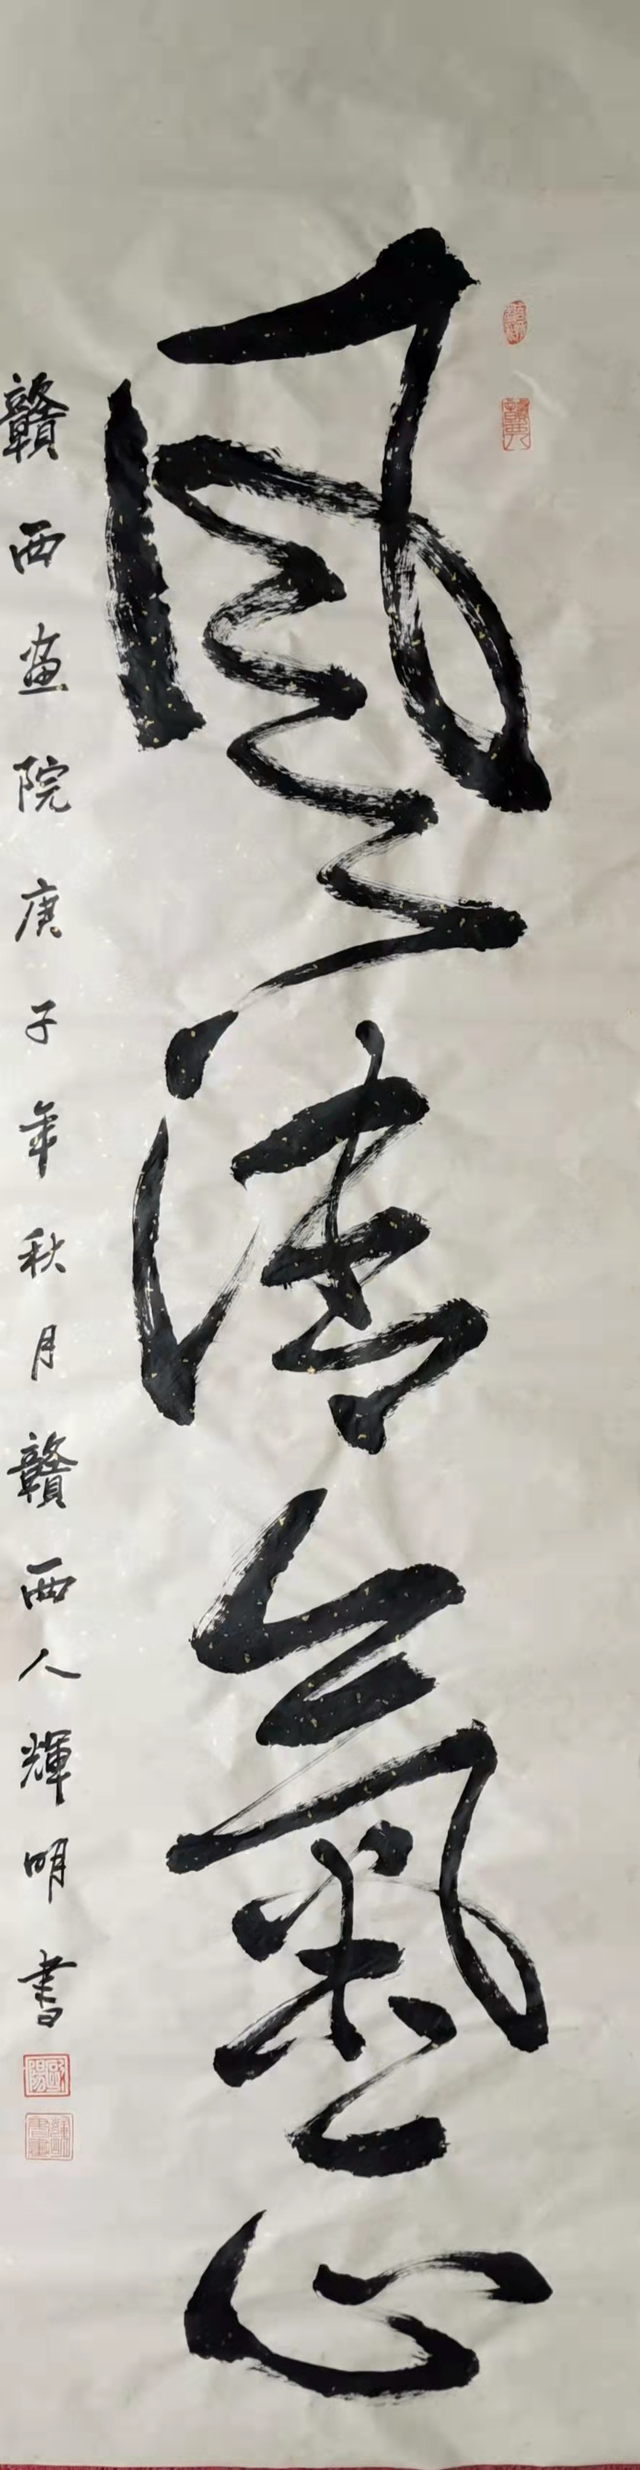 風清氣正
贛西畫院庚子年秋月贛西人輝明書